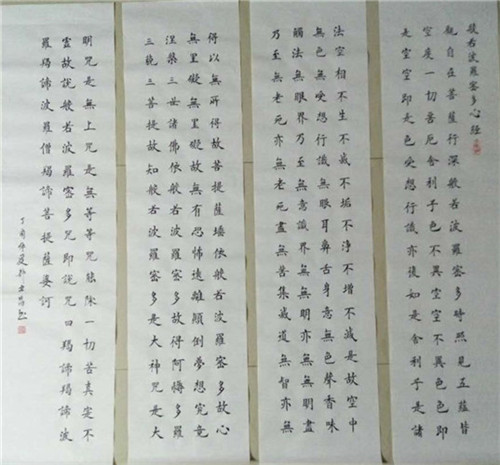 般若波羅密多心經
觀自在菩薩行深般若波羅密多時照見五蘊皆
空度一切苦厄舍利子色不異空空不異色色即
是空空即是色受想行識亦復如是舍利子是諸
法空相不生不滅不垢不淨不增不減是故空中
無色無受想行識無眼耳鼻舌身意無色聲香味
觸法無眼界乃至無意識界無無明亦無無明盡
乃至無老死亦無老死盡無苦集滅道無智亦無
得以無所得故菩提薩埵依般若波羅密多故心
無罣礙無罣礙故無有恐怖遠離顛倒夢想究竟
涅槃三世諸佛依般若波羅密多故得阿耨多羅
三藐三菩提故知般若波羅密多是大神咒是大
明咒是無上咒是無等等咒能除一切苦真實不
虛故說般若波羅密多咒即說咒曰羯諦羯諦波
羅羯諦波羅僧羯諦菩提薩婆訶
丁酉年夏